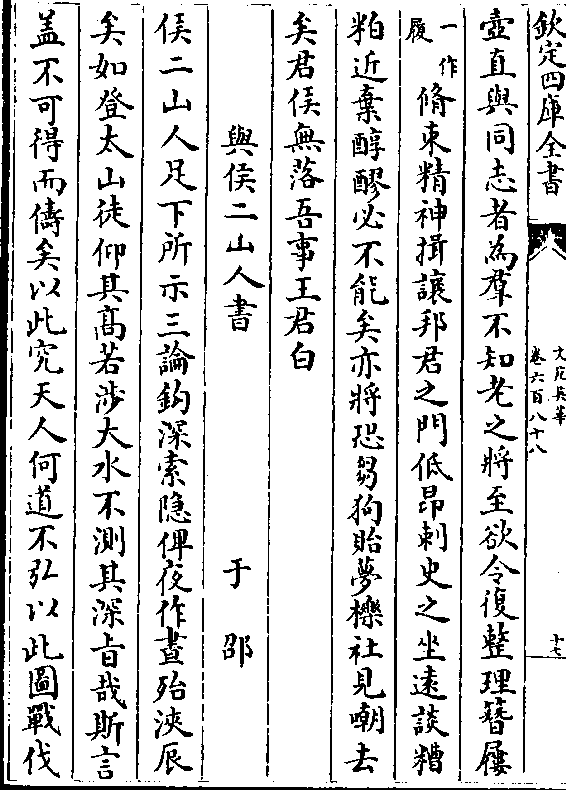 欽定四庫全書
文苑英華
卷六百八十八
十七
壺直與同志者為羣不知老之將至欲令復整理簮屨
一作
履
脩束精神揖讓邦君之門低昂刺史之坐遠談糟
粕近棄醇醪必不能矣亦將恐芻狗貽夢櫟社見嘲去
矣君侯無落吾事王君白
與侯二山人書
于邵
侯二山人足下所示三論鈎深索隐俾夜作晝殆浹辰
矣如登太山徒仰其髙若涉大水不測其深旨哉斯言
盖不可得而儔矣以此究天人何道不弘以此圖戰伐